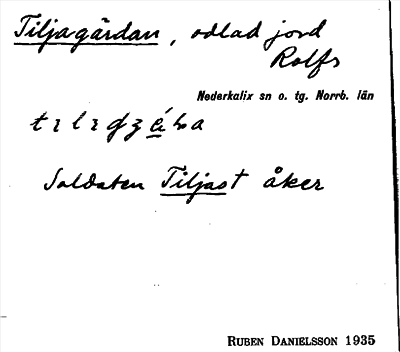 Tiljagärdan, odlad jord
Rolfs
Nederkalix sn o. tg. Norrb. län
Soldaten Tiljast åker
RUBEN DANIELSSON 1935